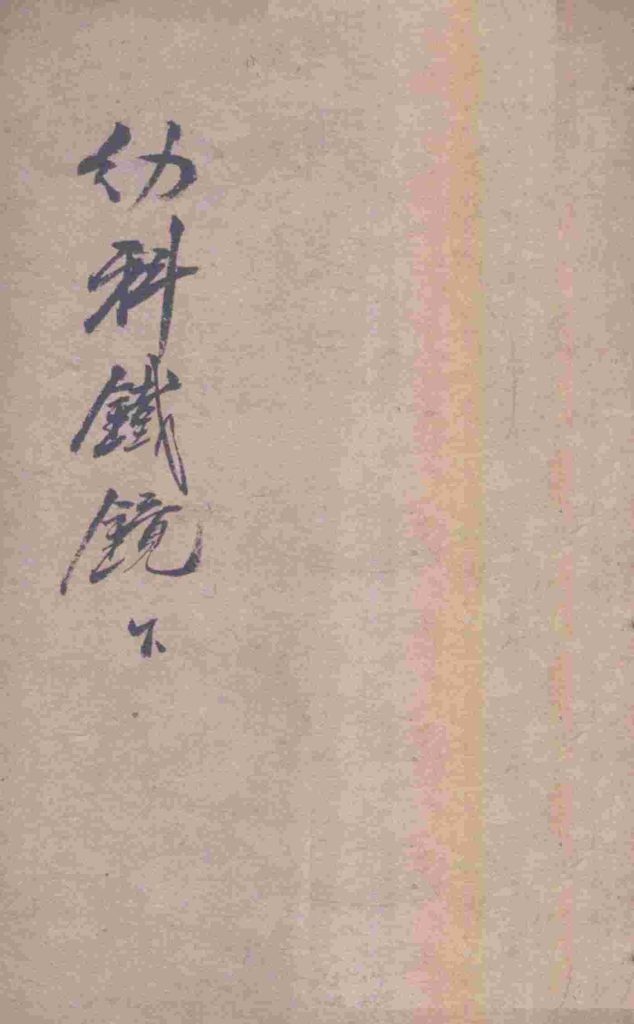 幼科鐵鏡下